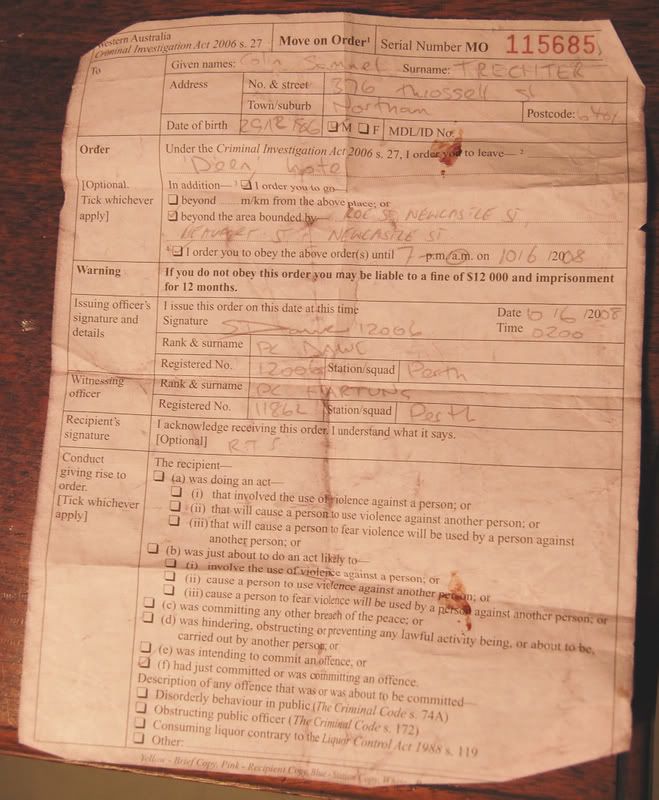 Western Australia
Criminal Investigation Act 2006 s. 27
Move on Order¹
Serial Number MO 115685
To
Given names: Colin Samuel Surname: TRECHTER
Address
No. & street 376 Throssell st
Town/suburb Northam
Postcode: 6401
Date of birth M F MDL/ID No.
Order
Under the Criminal Investigation Act 2006 s. 27, I order you to leave— ²
[Optional.
Tick whichever
apply]
In addition— ³ I order you to go—
beyond m/km from the above place; or
beyond the area bounded by— ROE ST, NEWCASTLE ST,
BEAUFORT ST NEWCASTLE ST
⁴ I order you to obey the above order(s) until 7 p.m./a.m. on 10/6 /2008
Warning
If you do not obey this order you may be liable to a fine of $12 000 and imprisonment
for 12 months.
Issuing officer's
signature and
details
I issue this order on this date at this time
Signature 12006
Date 10/6/2008
Time 0200
Rank & surname PC DAWE
Registered No. 12006 Station/squad Perth
Witnessing
officer
Rank & surname PC HARTUNG
Registered No. 11862 Station/squad Perth
Recipient's
signature
I acknowledge receiving this order. I understand what it says.
[Optional] R.T.S
Conduct
giving rise to
order.
[Tick whichever
apply]
The recipient—
(a) was doing an act—
(i) that involved the use of violence against a person; or
(ii) that will cause a person to use violence against another person; or
(iii) that will cause a person to fear violence will be used by a person against
another person; or
(b) was just about to do an act likely to—
(i) involve the use of violence against a person; or
(ii) cause a person to use violence against another person; or
(iii) cause a person to fear violence will be used by a person against another person; or
(c) was committing any other breach of the peace; or
(d) was hindering, obstructing or preventing any lawful activity being, or about to be,
carried out by another person; or
(e) was intending to commit an offence; or
(f) had just committed or was committing an offence.
Description of any offence that was or was about to be committed—
Disorderly behaviour in public (The Criminal Code s. 74A)
Obstructing public officer (The Criminal Code s. 172)
Consuming liquor contrary to the Liquor Control Act 1988 s. 119
Other:
Yellow - Brief Copy, Pink - Recipient Copy, Blue - Station Copy,